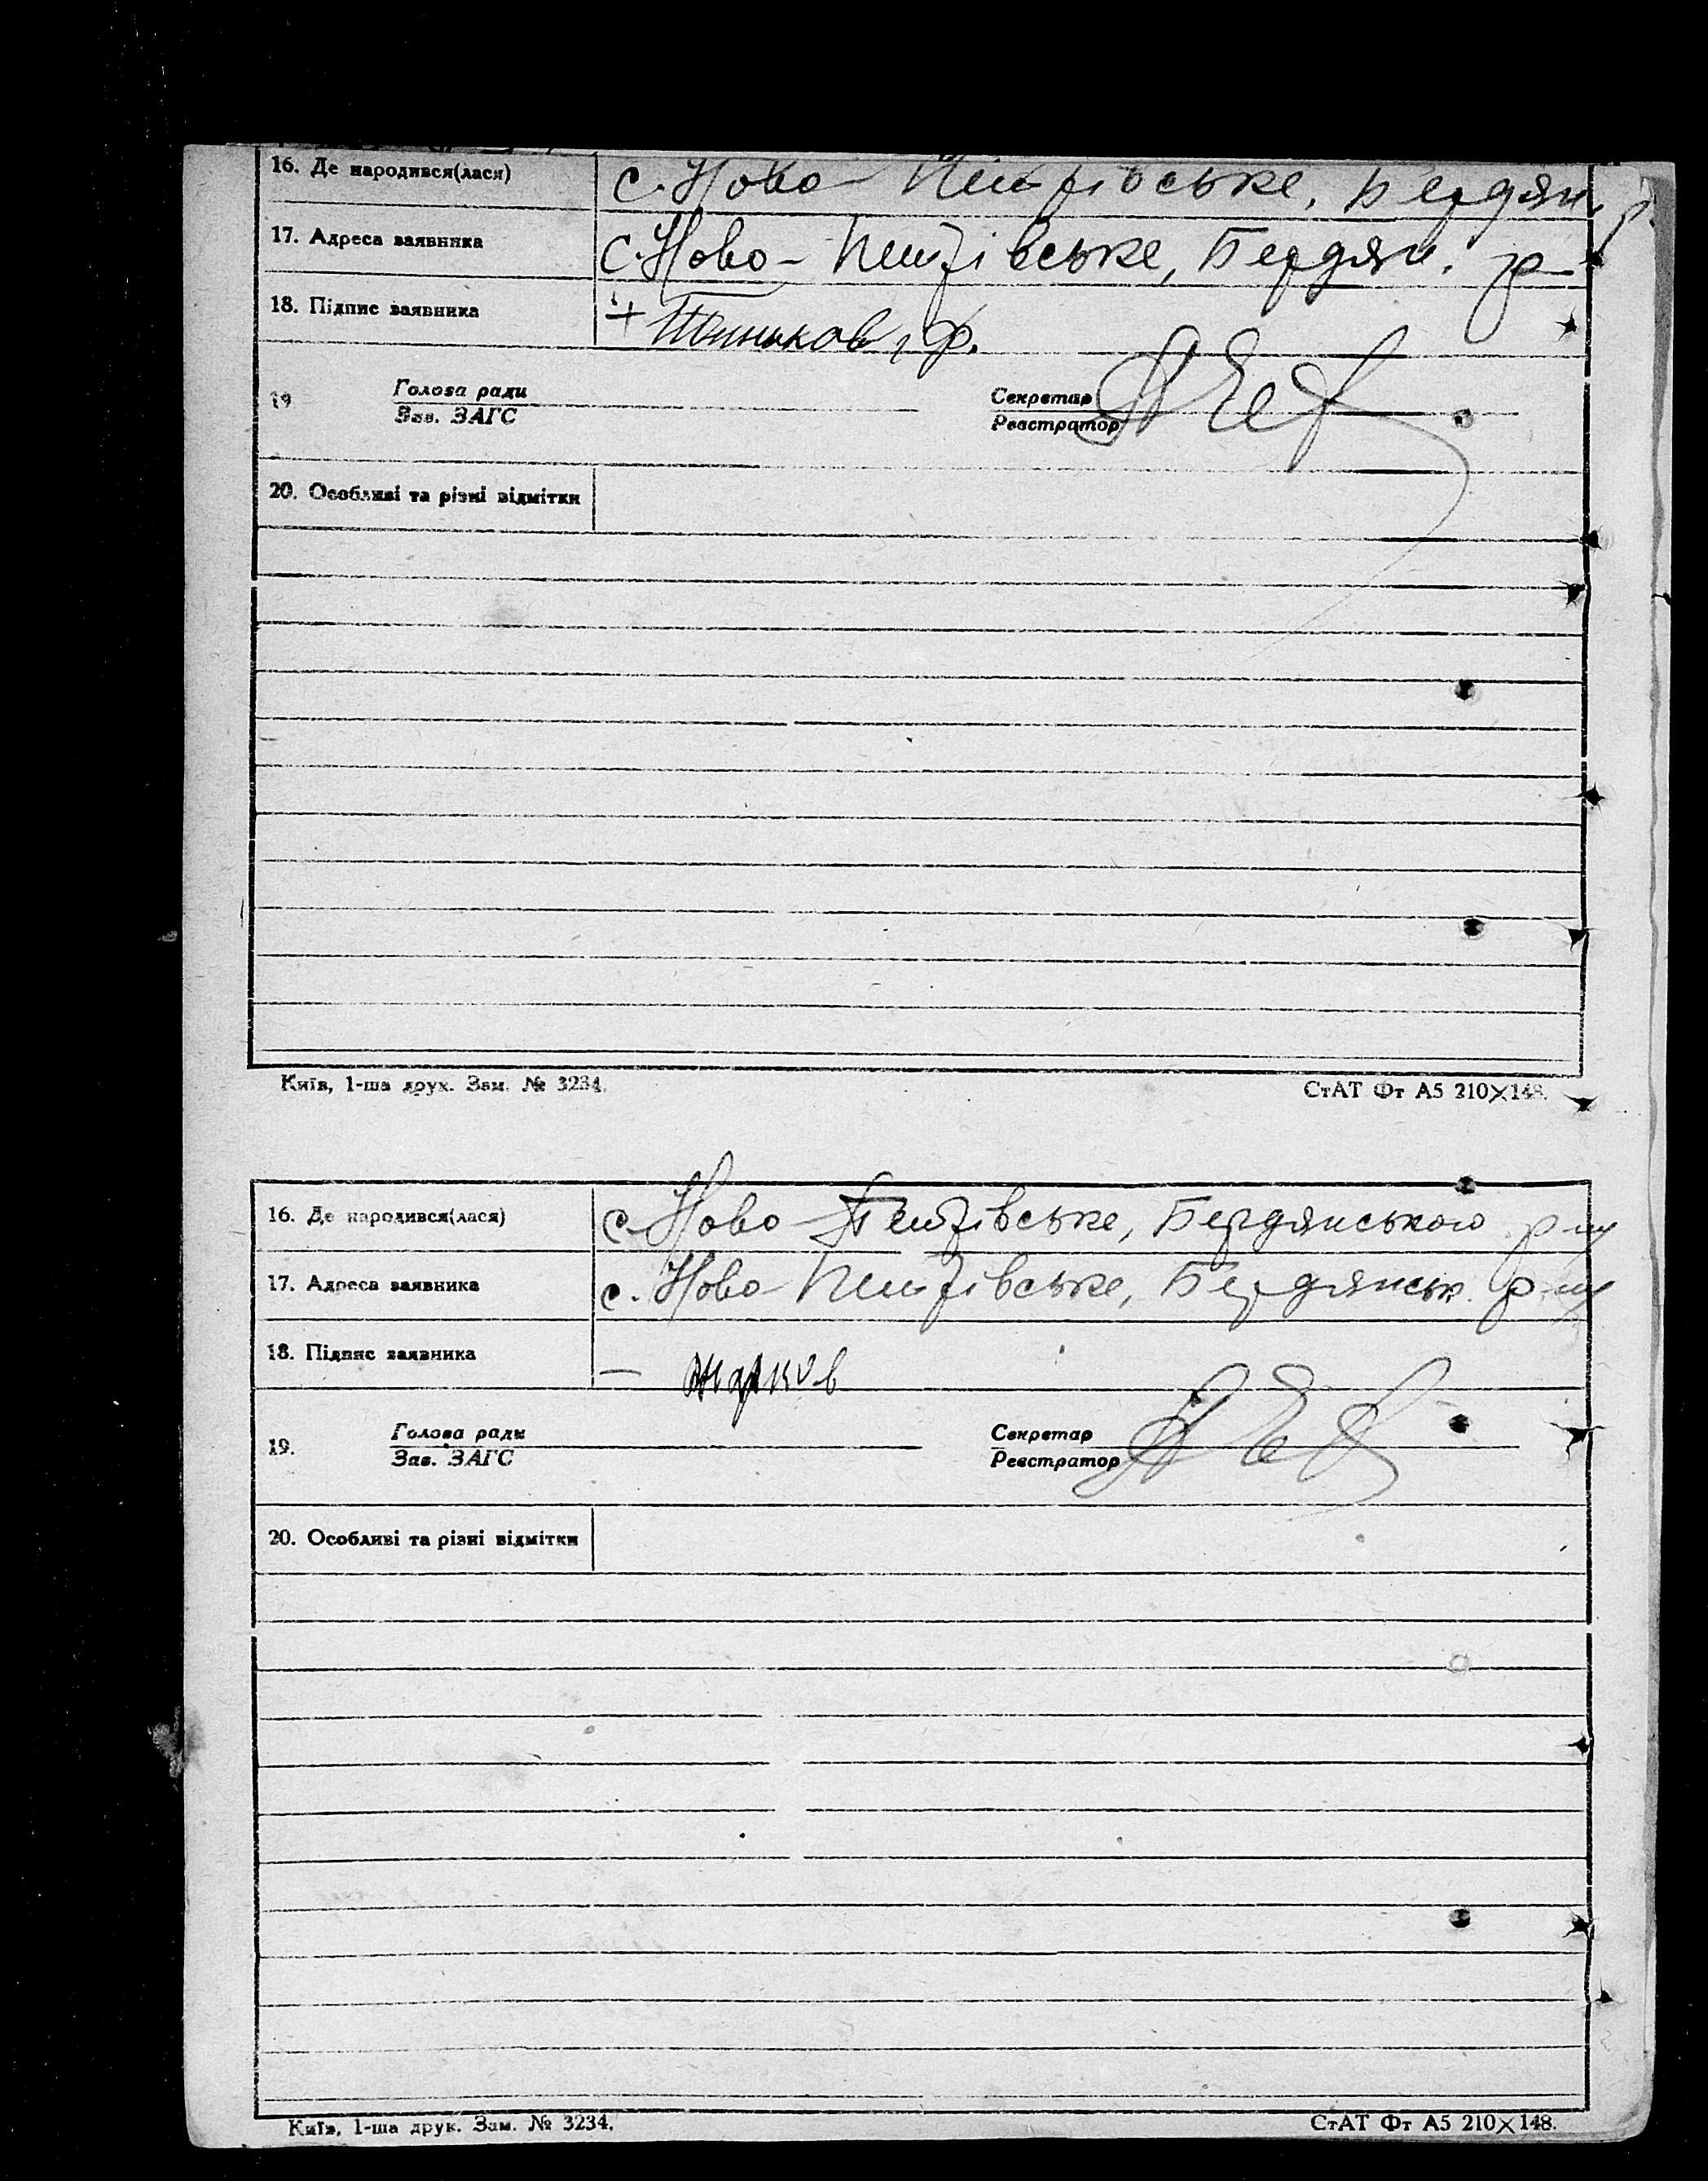 16. Де народився(лася) с. Ново Петрівське, Бердян. р.
17. Адреса заявника с. Ново-Петрівське, Бердян. р-
18. Підпис заявника
19 Голова ради Секретар
Зав. ЗАГС Реєстратор
20. Особливі та різні відмітки
Київ, 1-ша друк. Зам. № 3234. СтАТ Фт А5 210×148.
16. Де народився(лася) с. Ново Петрівське, Бердянського р-ну
17. Адреса заявника с. Ново Петрівське, Бердянськ. р-ну
18. Підпис заявника — Жарков
19. Голова ради Секретар
Зав. ЗАГС Реєстратор
20. Особливі та різні відмітки
Київ, 1-ша друк. Зам. № 3234. СтАТ Фт А5 210×148.